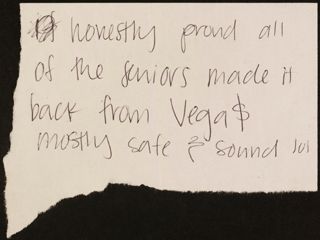 honestly proud all
of the seniors made it
back from Vega$
mostly safe & sound lol